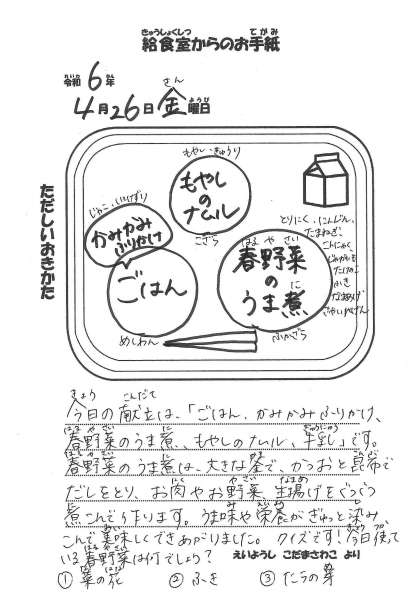 きゅうしょくしつ てがみ
給食室からのお手紙
れいわ ねん さん
令和 6年
4月26日 金曜日
ようび
もやし・きゅうり
もやし
の
ナムル
こざら
かみかみ
ふりかけ
ごはん
めしわん
はる や さい
春野菜
の
に
うま煮
ふかざら
とりにく、にんじん、
たまねぎ、
こんにゃく
じゃがいも
たけのこ
ふき
なまあげ
さやいんげん
ただしいおきかた
きょう こんだて
今日の献立は、「ごはん、かみかみふりかけ、
はる や さい に ぎゅうにゅう
春野菜のうま煮、もやしのナムル、牛乳」です。
春野菜のうま煮は、大きな釜で、かつおと昆布で
だしをとり、お肉やお野菜、生揚げをぐつぐつ
煮こんで作ります。うま味や栄養がぎゅっと染み
こんで美味しくできあがりました。 クイズです!今日使って
いる春野菜は何でしょう? えいようし こだまさわこ より
①菜の花 ②ふき ③たらの芽